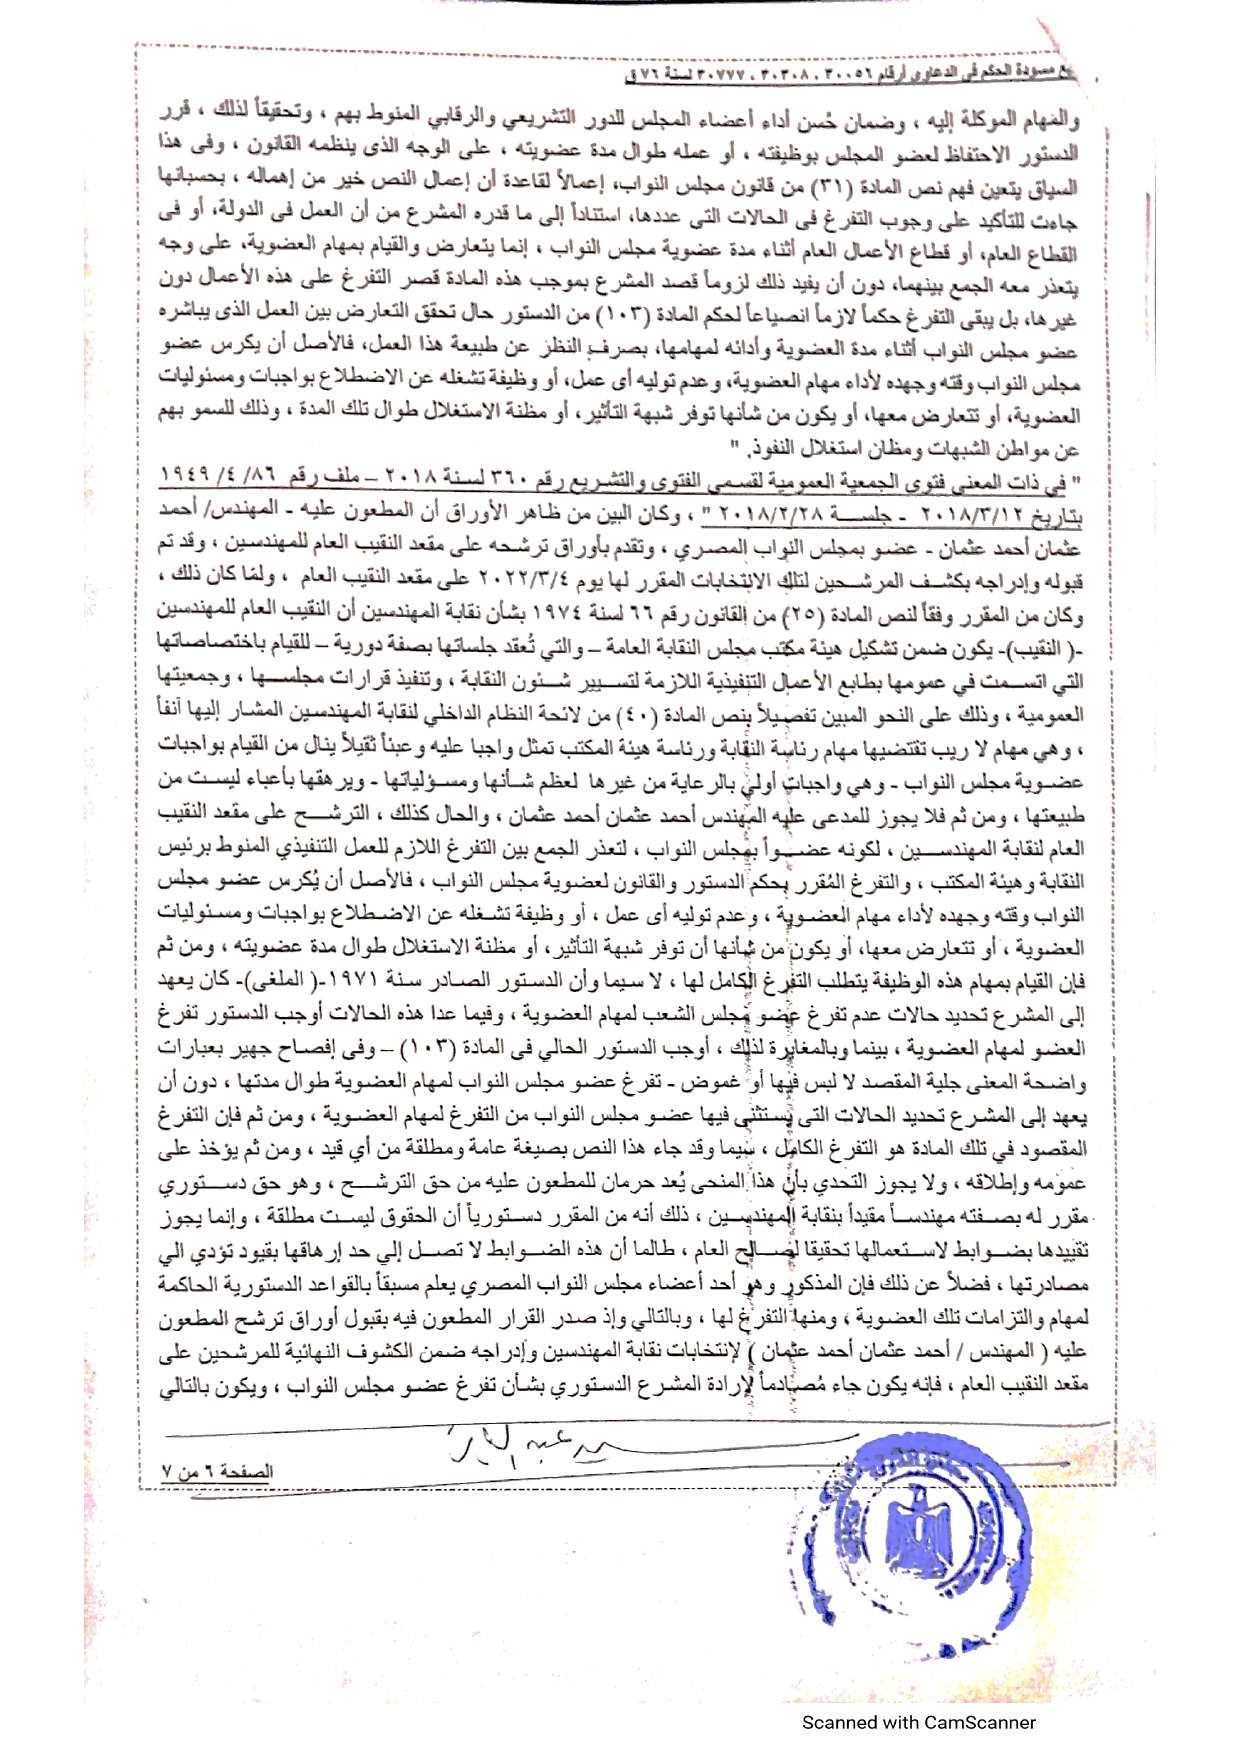 بع مسودة الحكم في الدعاوى أرقام ٣٠٠٥٦ ، ٣٠٣٠٨ ، ٣٠٧٧٧ لسنة ٧٦ ق
والمهام الموكلة إليه ، وضمان حُسن أداء أعضاء المجلس للدور التشريعي والرقابي المنوط بهم ، وتحقيقاً لذلك ، قرر
الدستور الاحتفاظ لعضو المجلس بوظيفته ، أو عمله طوال مدة عضويته ، على الوجه الذى ينظمه القانون ، وفى هذا
السياق يتعين فهم نص المادة (٣١) من قانون مجلس النواب، إعمالاً لقاعدة أن إعمال النص خير من إهماله ، بحسبانها
جاءت للتأكيد على وجوب التفرغ فى الحالات التى عددها، استناداً إلى ما قدره المشرع من أن العمل فى الدولة، أو فى
القطاع العام، أو قطاع الأعمال العام أثناء مدة عضوية مجلس النواب ، إنما يتعارض والقيام بمهام العضوية، على وجه
يتعذر معه الجمع بينهما، دون أن يفيد ذلك لزوماً قصد المشرع بموجب هذه المادة قصر التفرغ على هذه الأعمال دون
غيرها، بل يبقى التفرغ حكماً لازماً انصياعاً لحكم المادة (١٠٣) من الدستور حال تحقق التعارض بين العمل الذى يباشره
عضو مجلس النواب أثناء مدة العضوية وأدائه لمهامها، بصرف النظر عن طبيعة هذا العمل، فالأصل أن يكرس عضو
مجلس النواب وقته وجهده لأداء مهام العضوية، وعدم توليه أى عمل، أو وظيفة تشغله عن الاضطلاع بواجبات ومسئوليات
العضوية، أو تتعارض معها، أو يكون من شأنها توفر شبهة التأثير، أو مظنة الاستغلال طوال تلك المدة ، وذلك للسمو بهم
عن مواطن الشبهات ومظان استغلال النفوذ. "
" في ذات المعنى فتوى الجمعية العمومية لقسمي الفتوى والتشريع رقم ٣٦٠ لسنة ٢٠١٨ – ملف رقم ٨٦/ ٤/ ١٩٤٩
بتاريخ ٢٠١٨/٣/١٢ - جلسة ٢٠١٨/٢/٢٨ " ، وكان البين من ظاهر الأوراق أن المطعون عليه - المهندس/ أحمد
عثمان أحمد عثمان - عضو بمجلس النواب المصري ، وتقدم بأوراق ترشحه على مقعد النقيب العام للمهندسين ، وقد تم
قبوله وإدراجه بكشف المرشحين لتلك الانتخابات المقرر لها يوم ٢٠٢٢/٣/٤ على مقعد النقيب العام ، ولمّا كان ذلك ،
وكان من المقرر وفقاً لنص المادة (٢٥) من القانون رقم ٦٦ لسنة ١٩٧٤ بشأن نقابة المهندسين أن النقيب العام للمهندسين
-( النقيب)- يكون ضمن تشكيل هيئة مكتب مجلس النقابة العامة – والتي تُعقد جلساتها بصفة دورية – للقيام باختصاصاتها
التي اتسمت في عمومها بطابع الأعمال التنفيذية اللازمة لتسيير شئون النقابة ، وتنفيذ قرارات مجلسها ، وجمعيتها
العمومية ، وذلك على النحو المبين تفصيلاً بنص المادة (٤٠) من لائحة النظام الداخلي لنقابة المهندسين المشار إليها آنفاً
، وهي مهام لا ريب تقتضيها مهام رئاسة النقابة ورئاسة هيئة المكتب تمثل واجبا عليه وعبئاً ثقيلاً ينال من القيام بواجبات
عضوية مجلس النواب - وهي واجبات أولى بالرعاية من غيرها لعظم شأنها ومسؤلياتها - ويرهقها بأعباء ليست من
طبيعتها ، ومن ثم فلا يجوز للمدعى عليه المهندس أحمد عثمان أحمد عثمان ، والحال كذلك ، الترشح على مقعد النقيب
العام لنقابة المهندسين ، لكونه عضواً بمجلس النواب ، لتعذر الجمع بين التفرغ اللازم للعمل التنفيذي المنوط برئيس
النقابة وهيئة المكتب ، والتفرغ المُقرر بحكم الدستور والقانون لعضوية مجلس النواب ، فالأصل أن يُكرس عضو مجلس
النواب وقته وجهده لأداء مهام العضوية ، وعدم توليه أى عمل ، أو وظيفة تشغله عن الاضطلاع بواجبات ومسئوليات
العضوية ، أو تتعارض معها، أو يكون من شأنها أن توفر شبهة التأثير، أو مظنة الاستغلال طوال مدة عضويته ، ومن ثم
فإن القيام بمهام هذه الوظيفة يتطلب التفرغ الكامل لها ، لا سيما وأن الدستور الصادر سنة ١٩٧١-( الملغى)- كان يعهد
إلى المشرع تحديد حالات عدم تفرغ عضو مجلس الشعب لمهام العضوية ، وفيما عدا هذه الحالات أوجب الدستور تفرغ
العضو لمهام العضوية ، بينما وبالمغايرة لذلك ، أوجب الدستور الحالي فى المادة (١٠٣) – وفى إفصاح جهير بعبارات
واضحة المعنى جلية المقصد لا لبس فيها أو غموض - تفرغ عضو مجلس النواب لمهام العضوية طوال مدتها ، دون أن
يعهد إلى المشرع تحديد الحالات التى يستثنى فيها عضو مجلس النواب من التفرغ لمهام العضوية ، ومن ثم فإن التفرغ
المقصود في تلك المادة هو التفرغ الكامل ، سيما وقد جاء هذا النص بصيغة عامة ومطلقة من أي قيد ، ومن ثم يؤخذ على
عمومه وإطلاقه ، ولا يجوز التحدي بأن هذا المنحى يُعد حرمان للمطعون عليه من حق الترشح ، وهو حق دستوري
مقرر له بصفته مهندساً مقيداً بنقابة المهندسين ، ذلك أنه من المقرر دستورياً أن الحقوق ليست مطلقة ، وإنما يجوز
تقييدها بضوابط لاستعمالها تحقيقا لصالح العام ، طالما أن هذه الضوابط لا تصل إلي حد إرهاقها بقيود تؤدي الي
مصادرتها ، فضلاً عن ذلك فإن المذكور وهو أحد أعضاء مجلس النواب المصري يعلم مسبقاً بالقواعد الدستورية الحاكمة
لمهام والتزامات تلك العضوية ، ومنها التفرغ لها ، وبالتالي وإذ صدر القرار المطعون فيه بقبول أوراق ترشح المطعون
عليه ( المهندس / أحمد عثمان أحمد عثمان ) لإنتخابات نقابة المهندسين وإدراجه ضمن الكشوف النهائية للمرشحين على
مقعد النقيب العام ، فإنه يكون جاء مُصادماً لإرادة المشرع الدستوري بشأن تفرغ عضو مجلس النواب ، ويكون بالتالي
الصفحة ٦ من ٧
Scanned with CamScanner